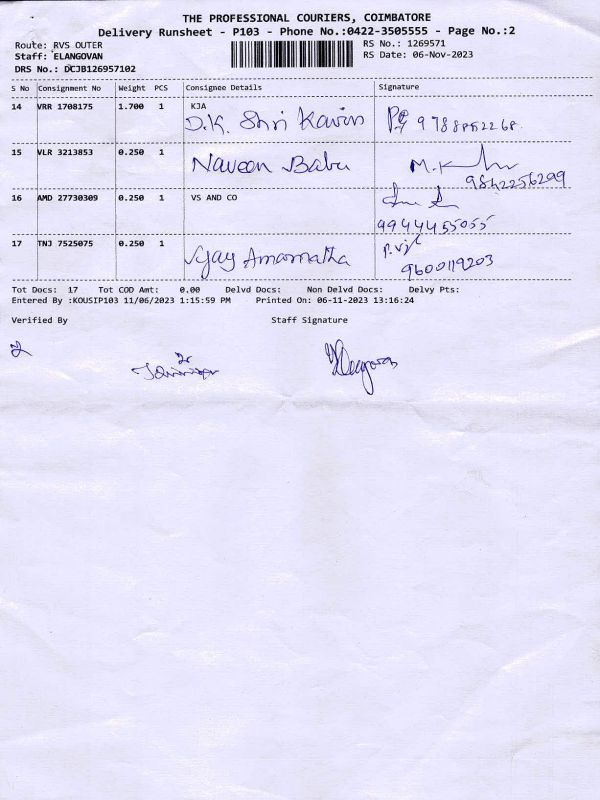 THE PROFESSIONAL COURIERS, COIMBATORE
Delivery Runsheet - P103 - Phone No.:0422-3505555 - Page No.:2
Route: RVS OUTER
RS No.: 1269571
Staff: ELANGOVAN
RS Date: 06-Nov-2023
DRS No.: DCJB126957102
S No Consignment No Weight PCS Consignee Details Signature
14 VRR 1708175 1.700 1 KJA
D.K. Shri Kavin 9788852268
15 VLR 3213853 0.250 1 Naveen Babu M.K
9842256299
16 AMD 27730309 0.250 1 VS AND CO
9944455055
17 TNJ 7525075 0.250 1 Vijay Amarnatha P. Vij
9600119203
Tot Docs: 17 Tot COD Amt: 0.00 Delvd Docs: Non Delvd Docs: Delvy Pts:
Entered By :KOUSIP103 11/06/2023 1:15:59 PM Printed On: 06-11-2023 13:16:24
Verified By Staff Signature
Elangovan